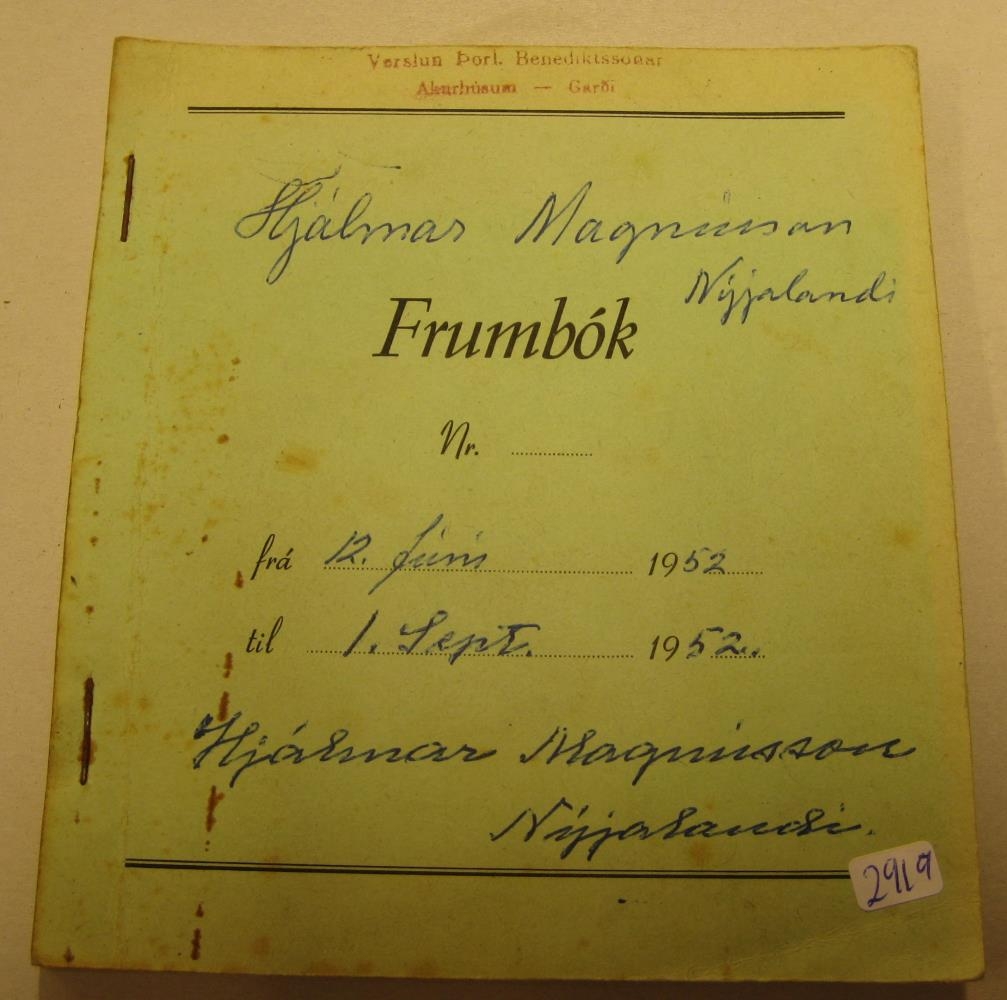 Verslun Þorl. Benediktssonar
Akurhúsum — Garði
Hjálmar Magnússon
Nýjalandi
Frumbók
Nr. ...............
frá 12. Júní 1952
til 1. Sept. 1952.
Hjálmar Magnússon
Nýjalandi.
2919